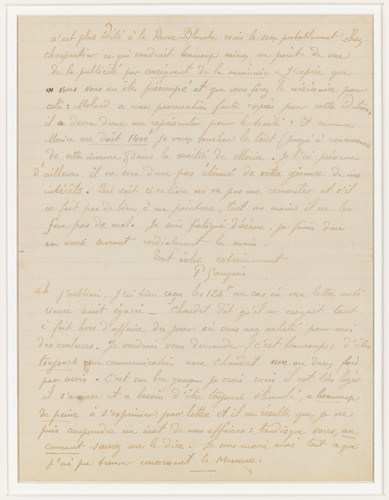 n'est plus édité à la Revue Blanche mais le sera probablement chez
Charpentier ce qui vaudrait beaucoup mieux au point de vue
de la publicité par conséquent de la monnaie. J'espère que
vous vous en êtes préoccupé et que vous faites le nécessaire pour
cela: Molard a une procuration faite exprès pour cette édition,
il devra donc me représenter pour le traité. Et comme
Morice me doit 1100f je veux toucher le tout (jusqu'à concurrence
de cette somme) dans la moitié de Morice. Je l'ai prévenu
d'ailleurs il ne sera donc pas étonné de votre gérance de mes
intérêts. Qui sait si ce livre ne va pas me remonter et s'il
ne fait pas de bien à ma peinture, tout au moins il ne lui
fera pas de mal. Je suis fatigué d'écrire, je finis donc
en vous serrant cordialement la main.
Tout vôtre entièrement
P. Gauguin
J'oubliais, j'ai bien reçu les 126f au cas où ma lettre anté
rieure serait égarée — Chaudet dit qu'il ne croyait tout
à fait hors d'affaire du jour où vous avez acheté pour moi
des couleurs. Je voudrais vous demander (c'est beaucoup) d'être
toujours en communication avec Chaudet une ou deux fois
par mois. C'est un bon garçon je crois mais il est très léger
il s'avance et a besoin d'être toujours stimulé, a beaucoup
de peine à s'exprimer par lettre et il en résulte que je ne
puis comprendre un mot de mes affaires: tandis que vous, au
courant saurez me le dire. Je vous envoie ainsi tout ce que
j'ai pu trouver concernant le Mercure.